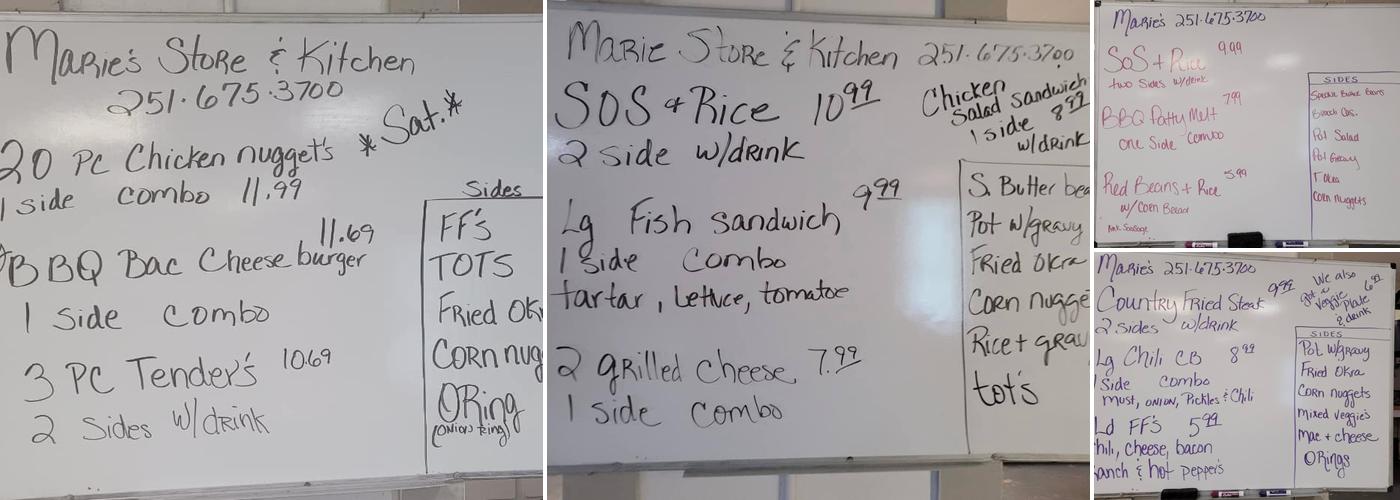 Marie's Store & Kitchen
251.675.3700
*Sat.*
20 PC Chicken nugget's
1 side combo 11.99
BBQ Bac Cheese burger 11.69
1 side combo
3 PC Tender's 10.69
2 sides w/drink
Sides
FF's
TOTS
Fried Ok
Corn nug
ORing
(onion ring)
Marie Store & Kitchen 251.675.3700
SOS + Rice 10.99
2 side w/drink
Chicken
Salad sandwich
1 side 8.99
w/drink
Lg Fish sandwich 9.99
1 side combo
tartar, Lettuce, tomatoe
2 grilled cheese 7.99
1 side combo
S. Butter bea
Pot w/gravy
Fried okra
Corn nugge
Rice + grav
tot's
Marie's 251.675.3700
SOS + Rice 9.99
two sides w/drink
BBQ Patty Melt 7.99
one Side Combo
Red Beans + Rice 5.99
w/ Corn Bread
SIDES
Pot Salad
Pot Gravy
Corn nuggets
Marie's 251.675.3700
Country Fried Steak 9.99
2 sides w/drink
We also
got a
veggie Plate 6.99
& drink
Lg Chili CB 8.99
1 Side combo
must, onion, Pickles & Chili
Ld FF's 5.99
hili, cheese, bacon
anch & hot pepper's
SIDES
Pot w/gravy
Fried okra
Corn nuggets
mixed veggie's
mac + cheese
ORings